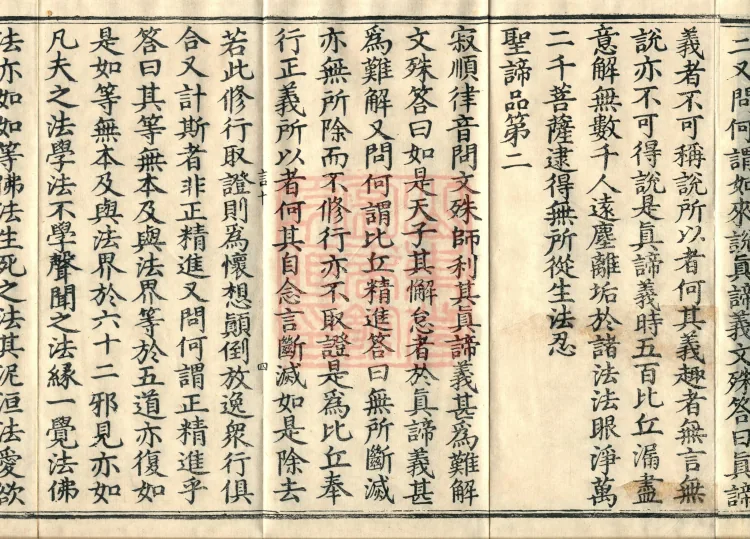 二又問何謂如來說眞諦義文殊答曰眞諦
義者不可稱說所以者何其義趣者無言無
說亦不可得說是眞諦義時五百比丘漏盡
意解無數千人遠塵離垢於諸法法眼淨萬
二千菩薩逮得無所從生法忍
聖諦品第二
寂順律音問文殊師利其眞諦義甚爲難解
文殊答曰如是天子其懈怠者於眞諦義甚
爲難解又問何謂比丘精進答曰無所斷滅
亦無所除而不修行亦不取證是爲比丘奉
行正義所以者何其自念言斷滅如是除去
言十 四
若此修行取證則爲懷想顚倒放逸衆行俱
合又計斯者非正精進又問何謂正精進乎
答曰其等無本及與法界等於五道亦復如
是如等無本及與法界於六十二邪見亦如
凡夫之法學法不學聲聞之法緣一覺法佛
法亦如如等佛法生死之法其泥洹法愛欲